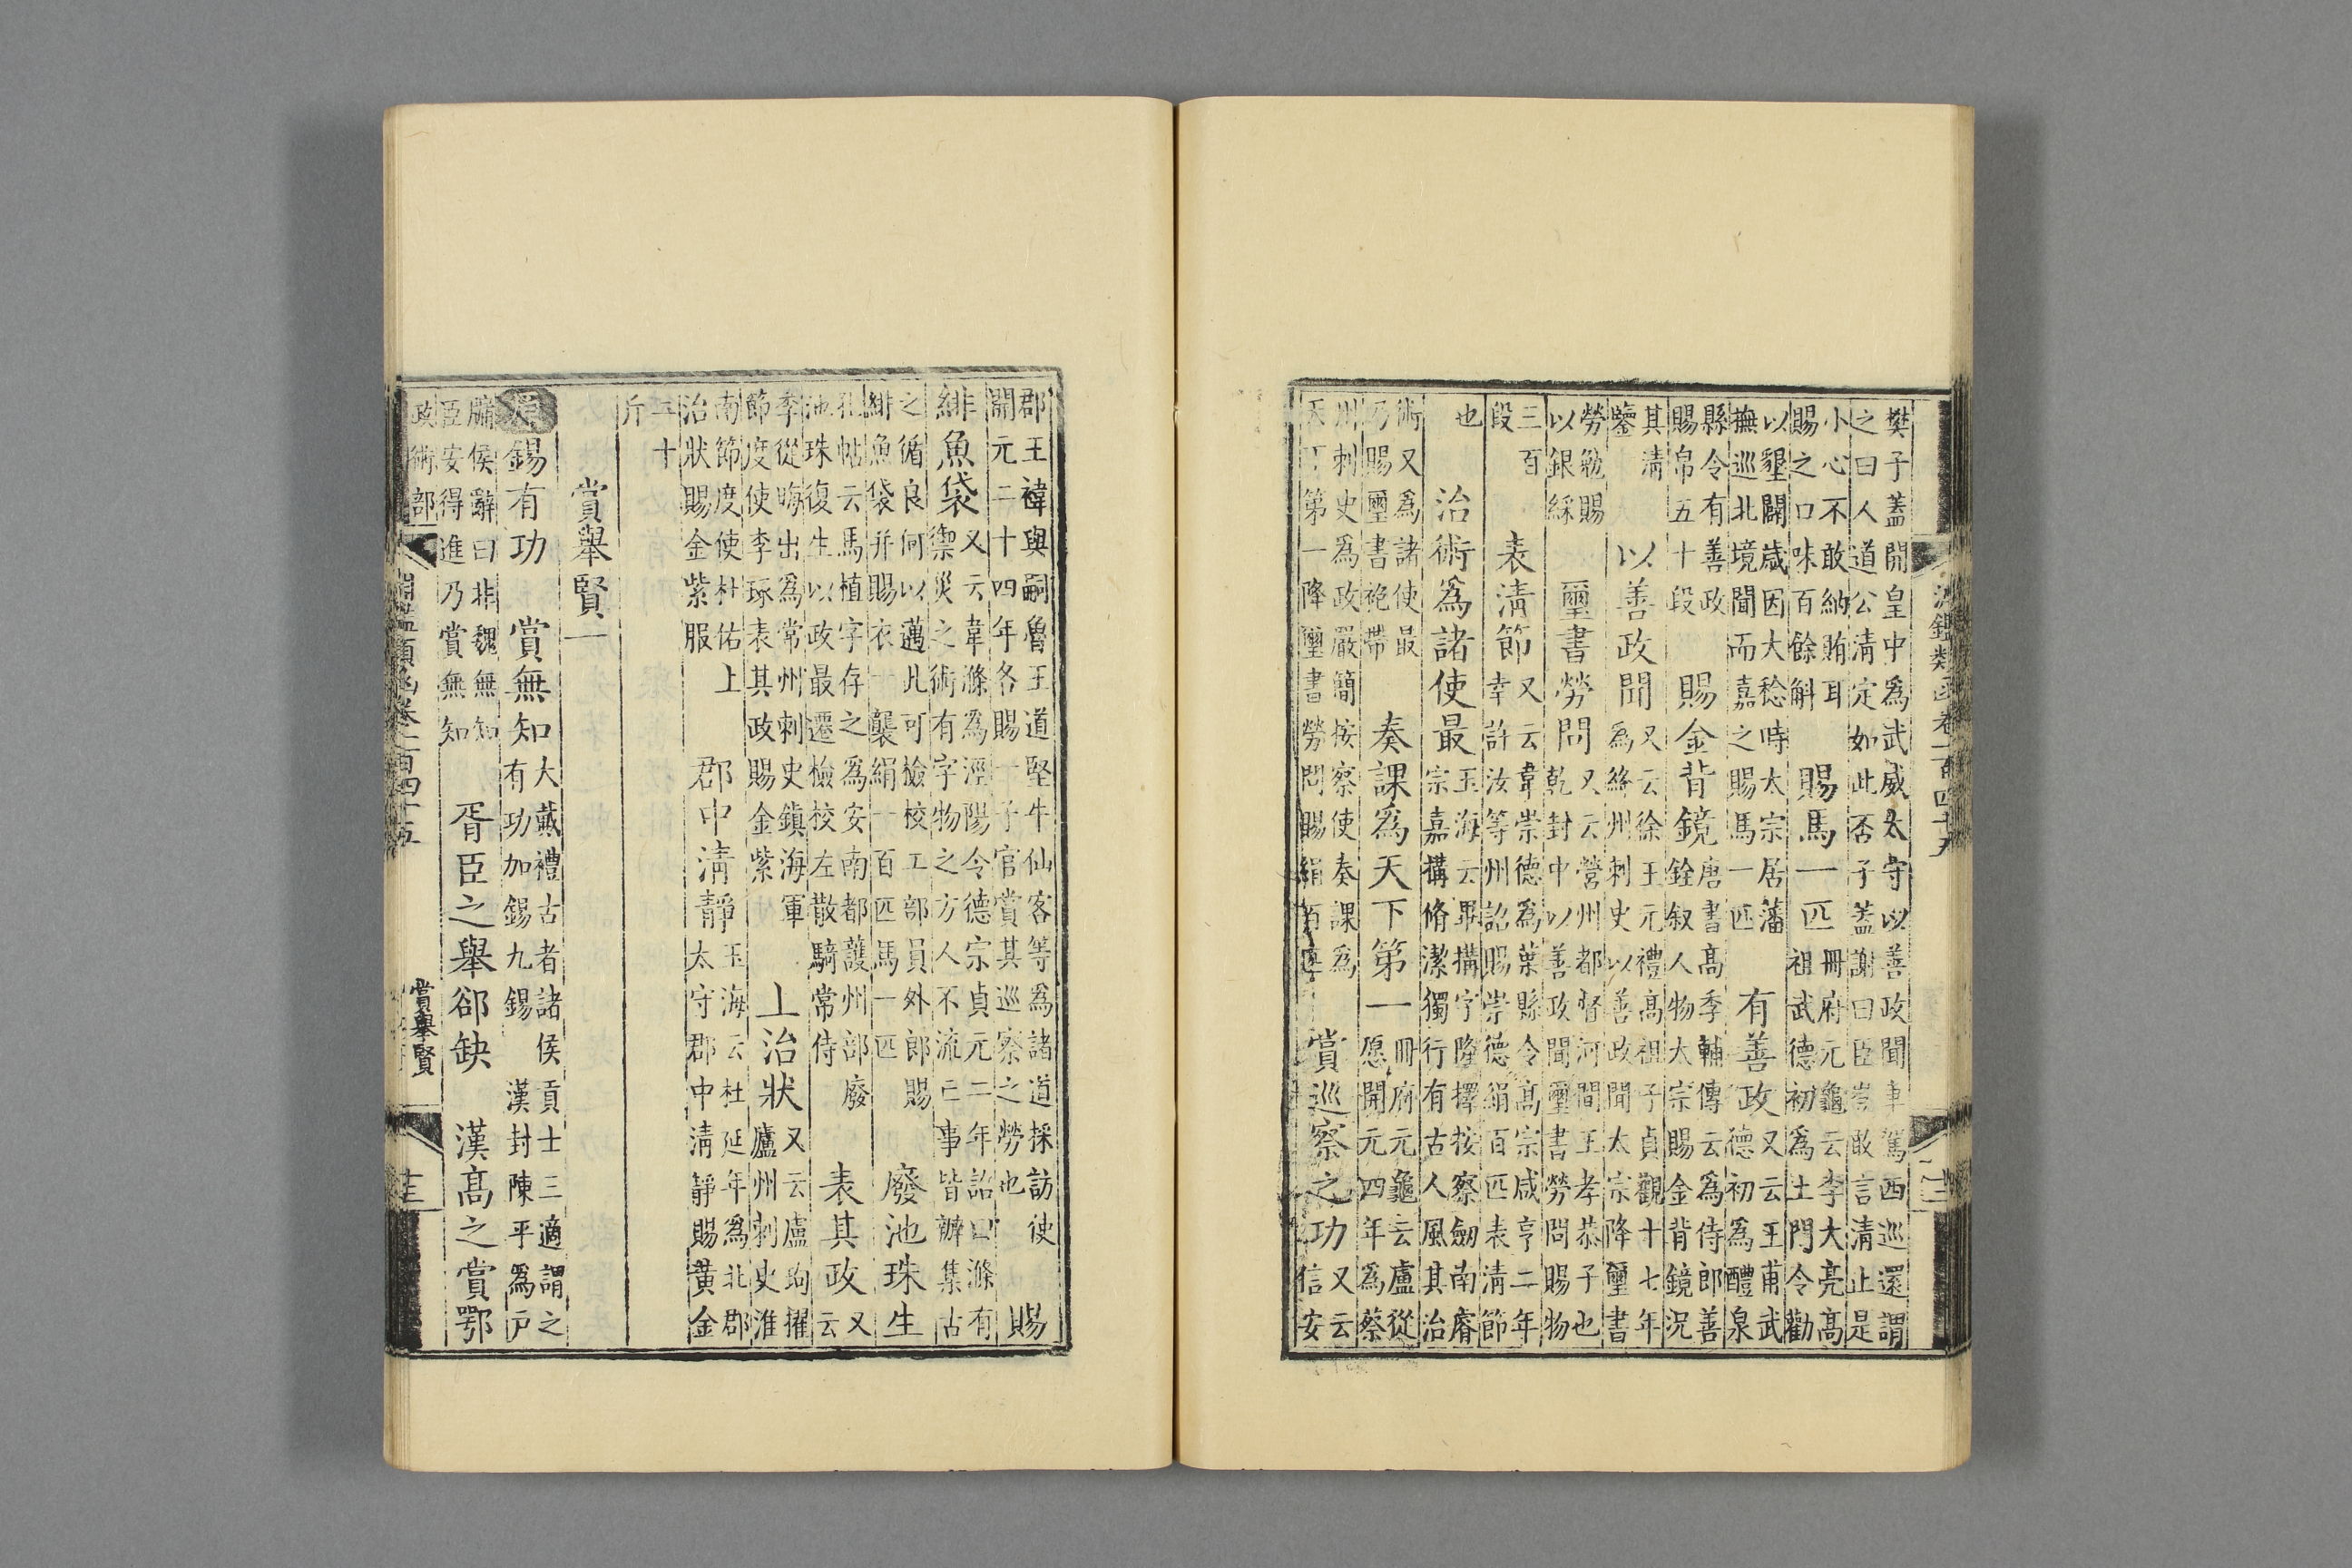 淵鑑類函卷一百四十五
樊子蓋開皇中為武威太守以善政聞車駕西巡還謂
之曰人道公清定如此否子蓋謝曰臣豈敢言清止是
小心不敢納賄耳
賜之口味百餘斛
賜馬一匹
冊府元龜云李大亮高
祖武德初為土門令勸
以墾闢歲因大稔時太宗居藩
撫巡北境聞而嘉之賜馬一匹
有善政
又云王甫武
德初為醴泉
縣令有善政
賜帛五十段
賜金背鏡
唐書高季輔傳云為侍郎善
銓叙人物太宗賜金背鏡況
其清
鑒
以善政聞
又云徐王元禮高祖子貞觀十七年
為絳州刺史以善政聞太宗降璽書
勞勉賜
以銀綵
璽書勞問
又云營州都督河間王孝恭子也
乾封中以善政聞璽書勞問賜物
三百
段
表清節
又云韋崇德為葉縣令高宗咸亨二年
幸許汝等州詔賜崇德絹百匹表清節
也
治術為諸使最
玉海云畢搆字隆擇按察劒南睿
宗嘉搆脩潔獨行有古人風其治
術又為諸使最
乃賜璽書袍帶
奏課為天下第一
冊府元龜云盧從
愿開元四年為蔡
州刺史為政嚴簡按察使奏課為
天下第一降璽書勞問賜絹百疋
賞巡察之功
又云
信安
郡王禕與嗣魯王道堅牛仙客等為諸道採訪使
開元二十四年各賜一子官賞其巡察之勞也
賜
緋魚袋
又云韋滌為涇陽令德宗貞元二年詔曰滌有
禦災之術有字物之方人不流亡事皆辦集古
之循良何以邁此可檢校工部員外郎賜
緋魚袋并賜衣一襲絹一百匹馬一匹
廢池珠生
孔帖云馬植字存之為安南都護州部廢
池珠復生以政最遷檢校左散騎常侍
表其政
又
云
李從晦出為常州刺史鎮海軍
節度使李琢表其政賜金紫
上治狀
又云盧擢
廬州刺史淮
南節度使杜佑上
治狀賜金紫服
郡中清靜
玉海云杜延年為北郡
太守郡中清靜賜黃金
二十
斤
賞舉賢一
原
錫有功
賞無知
大戴禮古者諸侯貢士三適謂之
有功加錫九錫 漢封陳平為戶
牖侯辭曰非魏無知
臣安得進乃賞無知
胥臣之舉郤缺
漢高之賞鄂
政術部
淵鑑類函卷一百四十五
賞舉賢
十三